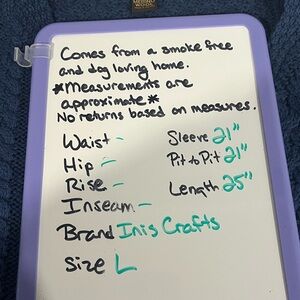 Comes from a smoke free
and dog loving home.
*Measurements are
approximate*
No returns based on measures.
Waist -
Hip -
Rise -
Inseam -
Sleeve 21"
Pit to Pit 21"
Length 25"
Brand Inis Crafts
Size L